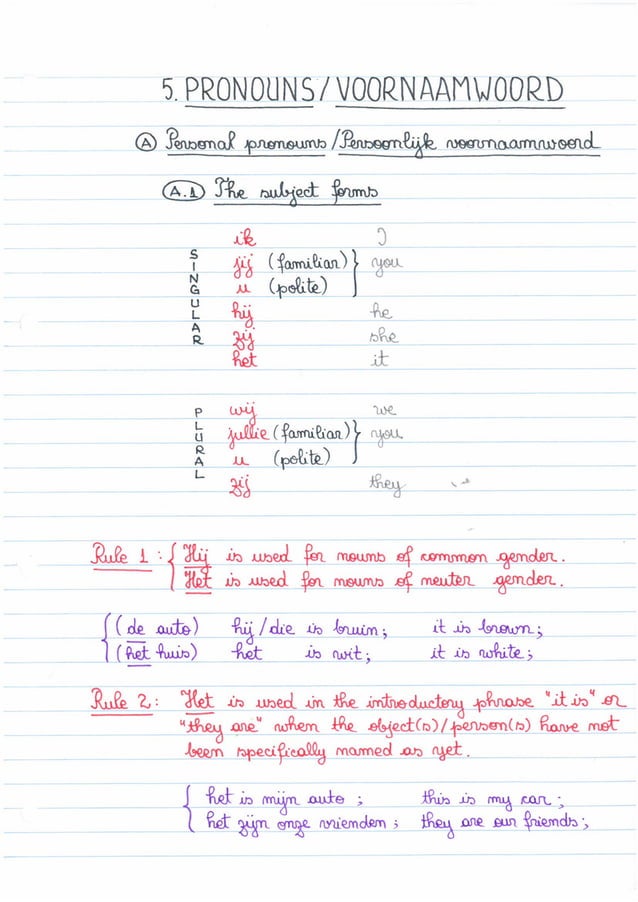 5. PRONOUNS / VOORNAAMWOORD
A Personal pronouns / Persoonlijk voornaamwoord
A.1 The subject forms
SINGULAR
ik I
jij (familiar) } you
u (polite)
hij he
zij she
het it
PLURAL
wij we
jullie (familiar) } you
u (polite)
zij they
Rule 1 : { Hij is used for nouns of common gender.
Het is used for nouns of neuter gender.
{ (de auto) hij / die is bruin ; it is brown ;
(het huis) het is wit ; it is white ;
Rule 2 : Het is used in the introductory phrase "it is" or
"they are" when the object(s) / person(s) have not
been specifically named as yet.
{ het is mijn auto ; this is my car ;
het zijn onze vrienden ; they are our friends ;